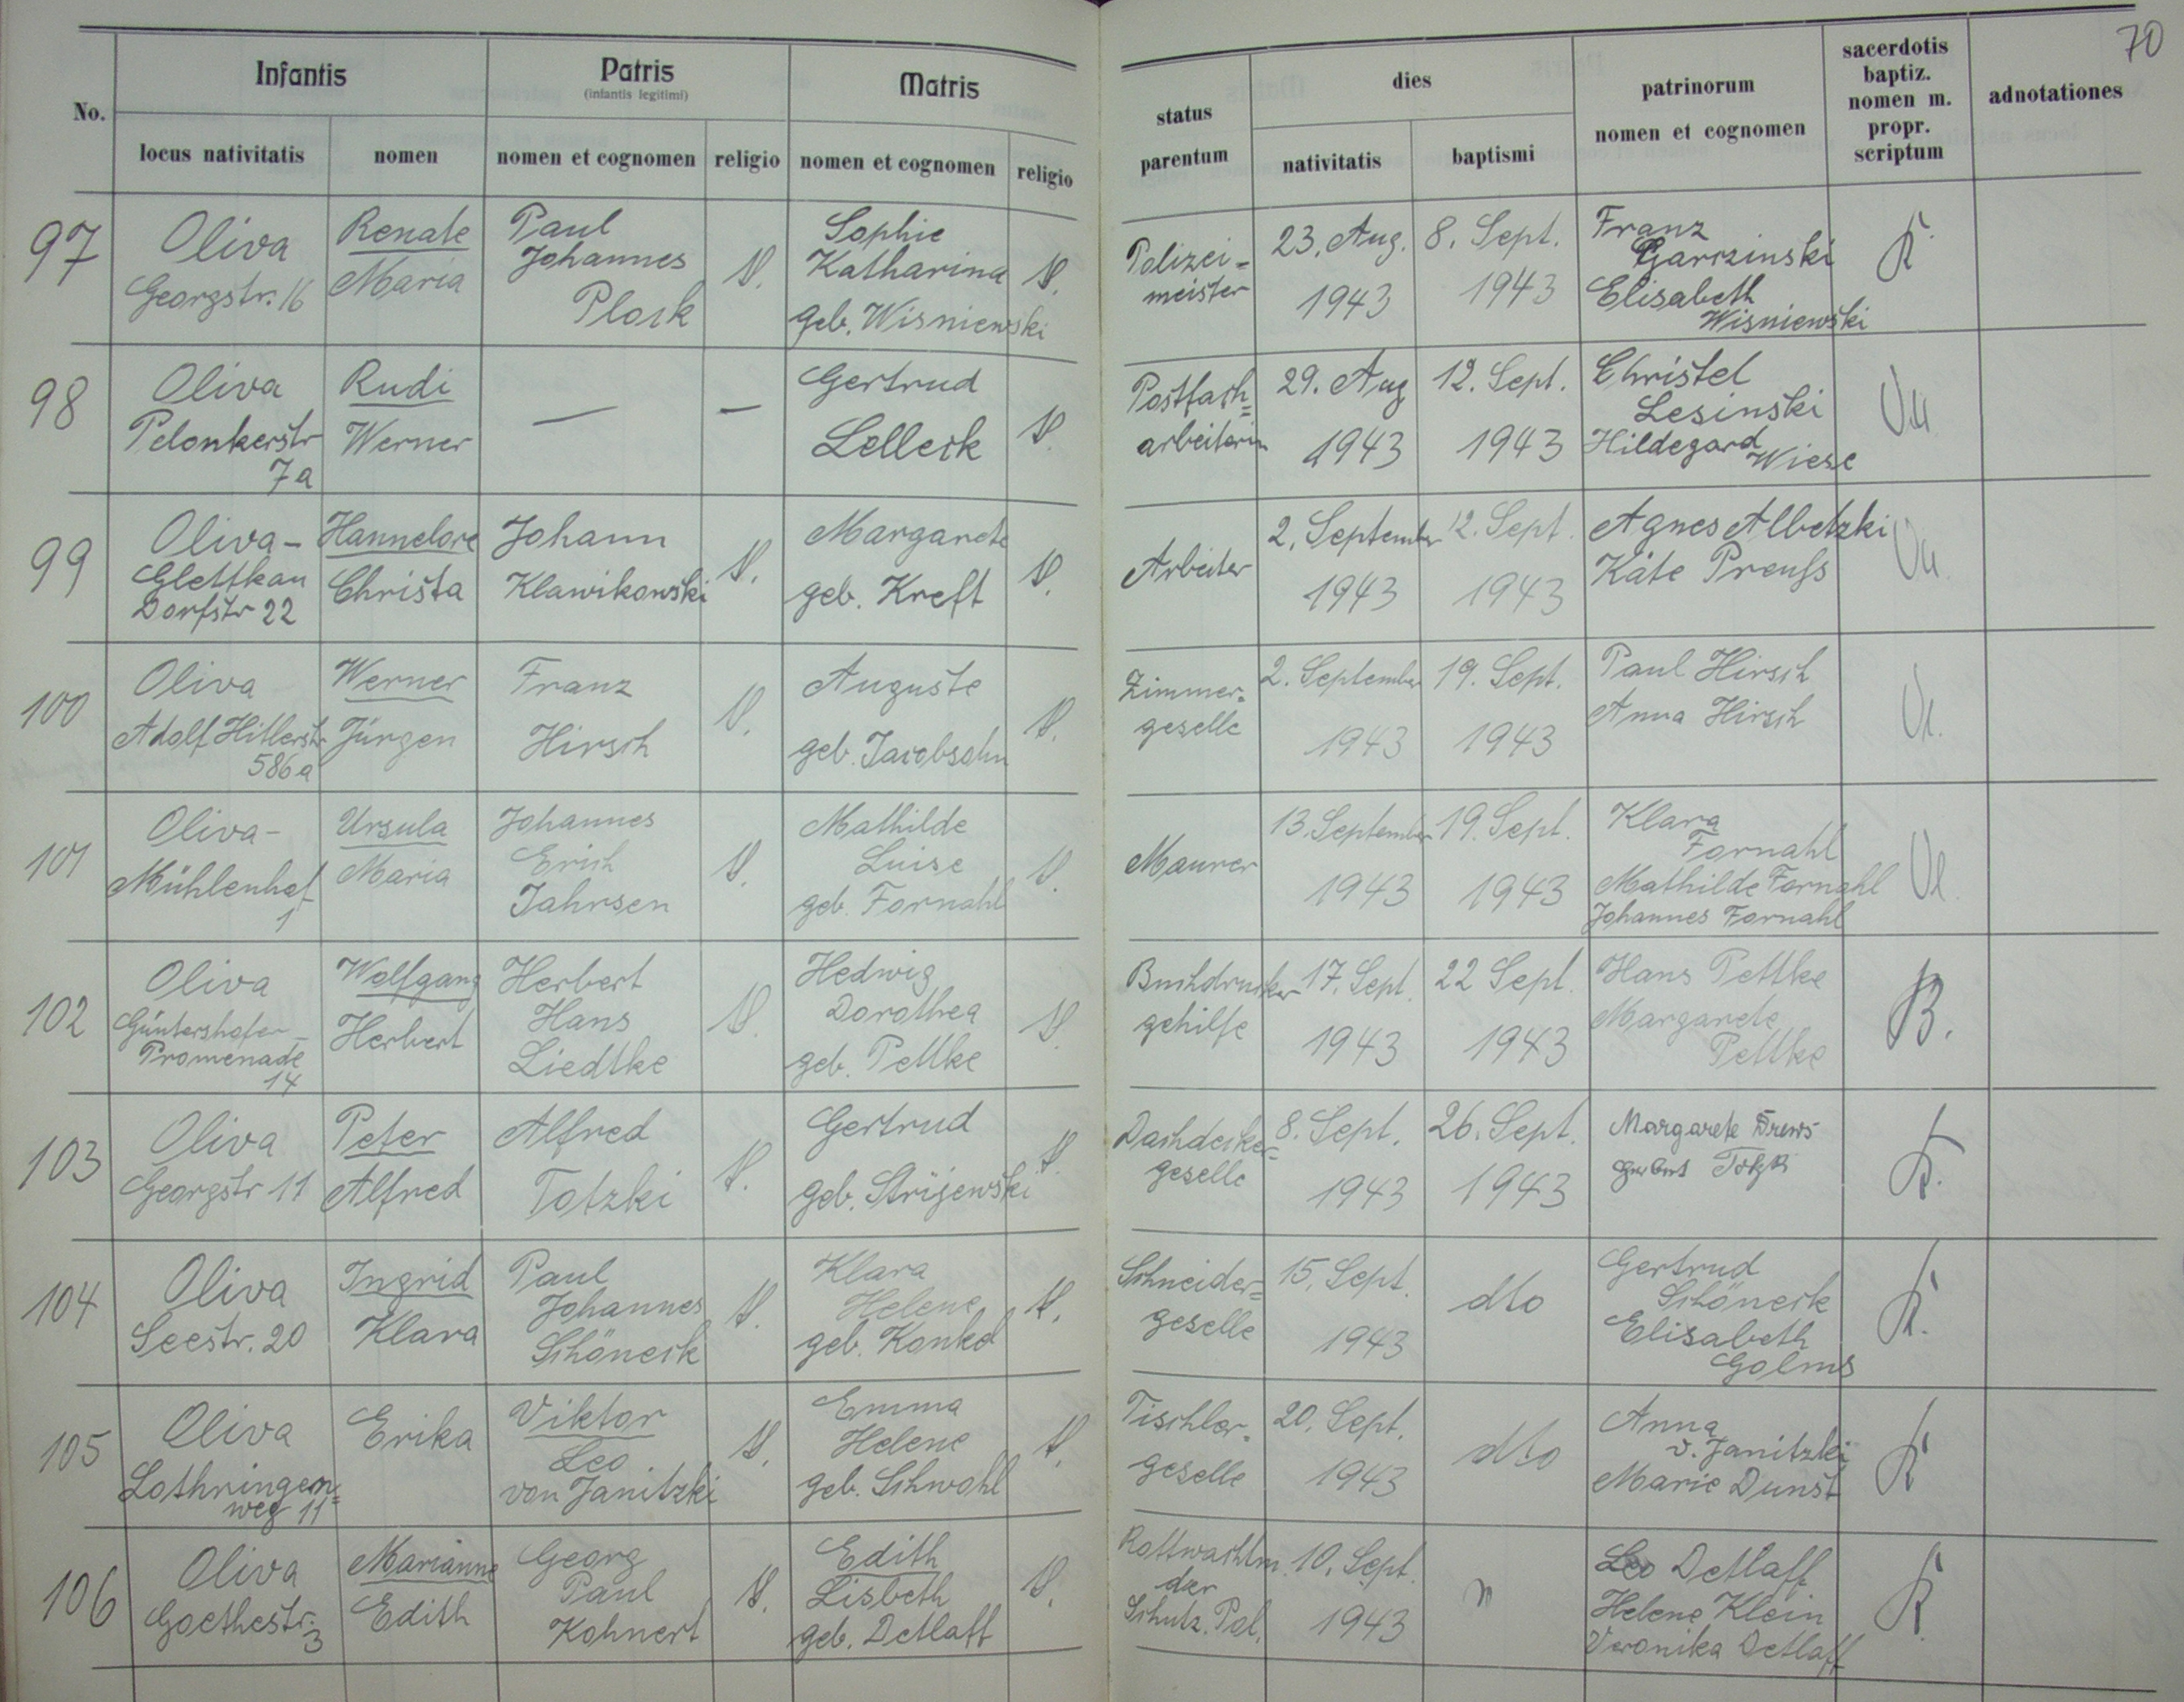 70
No.
Infantis
locus nativitatis
nomen
Patris
(infantis legitimi)
nomen et cognomen
religio
Matris
nomen et cognomen
religio
status
parentum
dies
nativitatis
baptismi
patrinorum
nomen et cognomen
sacerdotis
baptiz.
nomen m.
propr.
scriptum
adnotationes
97
Oliva
Georgstr. 16
Renate
Maria
Paul
Johannes
Plock
Sophie
Katharina
geb. Wisniewski
Polizei-
meister
23. Aug.
1943
8. Sept.
1943
Franz
Garczinski
Elisabeth
Wisniewski
K
98
Oliva
Pelonkerstr
7a
Rudi
Werner
—
—
Gertrud
Lelleck
Postfach=
arbeiterin
29. Aug
1943
12. Sept.
1943
Christel
Lesinski
Hildegard
Wiese
99
Oliva-
Glettkau
Dorfstr 22
Hannelore
Christa
Johann
Klawikowski
Margarete
geb. Kreft
Arbeiter
2. September
1943
12. Sept.
1943
Agnes Albetzki
Käte Preuß
100
Oliva
Adolf Hitlerstr
586a
Werner
Jürgen
Franz
Hirsch
Auguste
geb. Jacobsohn
Zimmer-
geselle
2. September
1943
19. Sept.
1943
Paul Hirsch
Anna Hirsch
101
Oliva-
Mühlenhof
1
Ursula
Maria
Johannes
Erich
Jahrsen
Mathilde
Luise
geb. Fornahl
Maurer
13. September
1943
19. Sept.
1943
Klara
Fornahl
Mathilde Fornahl
Johannes Fornahl
102
Oliva
Güntershofer-
Promenade
14
Wolfgang
Herbert
Herbert
Hans
Liedtke
Hedwig
Dorothea
geb. Pettke
Buchdrucker
gehilfe
17. Sept.
1943
22 Sept.
1943
Hans Pettke
Margarete
Pettke
B.
103
Oliva
Georgstr 11
Peter
Alfred
Alfred
Totzki
Gertrud
geb. Strijewski
Dachdecker=
geselle
8. Sept.
1943
26. Sept.
1943
Margarete Drews
K.
104
Oliva
Seestr. 20
Ingrid
Klara
Paul
Johannes
Schöneck
Klara
Helene
geb. Konkol
Schneider=
geselle
15. Sept.
1943
dto
Gertrud
Schöneck
Elisabeth
Golms
K.
105
Oliva
Lothringen=
weg 11
Erika
Viktor
Leo
von Janitzki
Emma
Helene
geb. Schwohl
Tischler-
geselle
20. Sept.
1943
dto
Anna
v. Janitzki
Marie Dunst
K
106
Oliva
Goethestr.
3
Marianne
Edith
Georg
Paul
Kohnert
Edith
Lisbeth
geb. Detlaff
Rottwachtm.
der
Schutz. Pol.
10. Sept.
1943
Leo Detlaff
Helene Klein
Veronika Detlaff
K